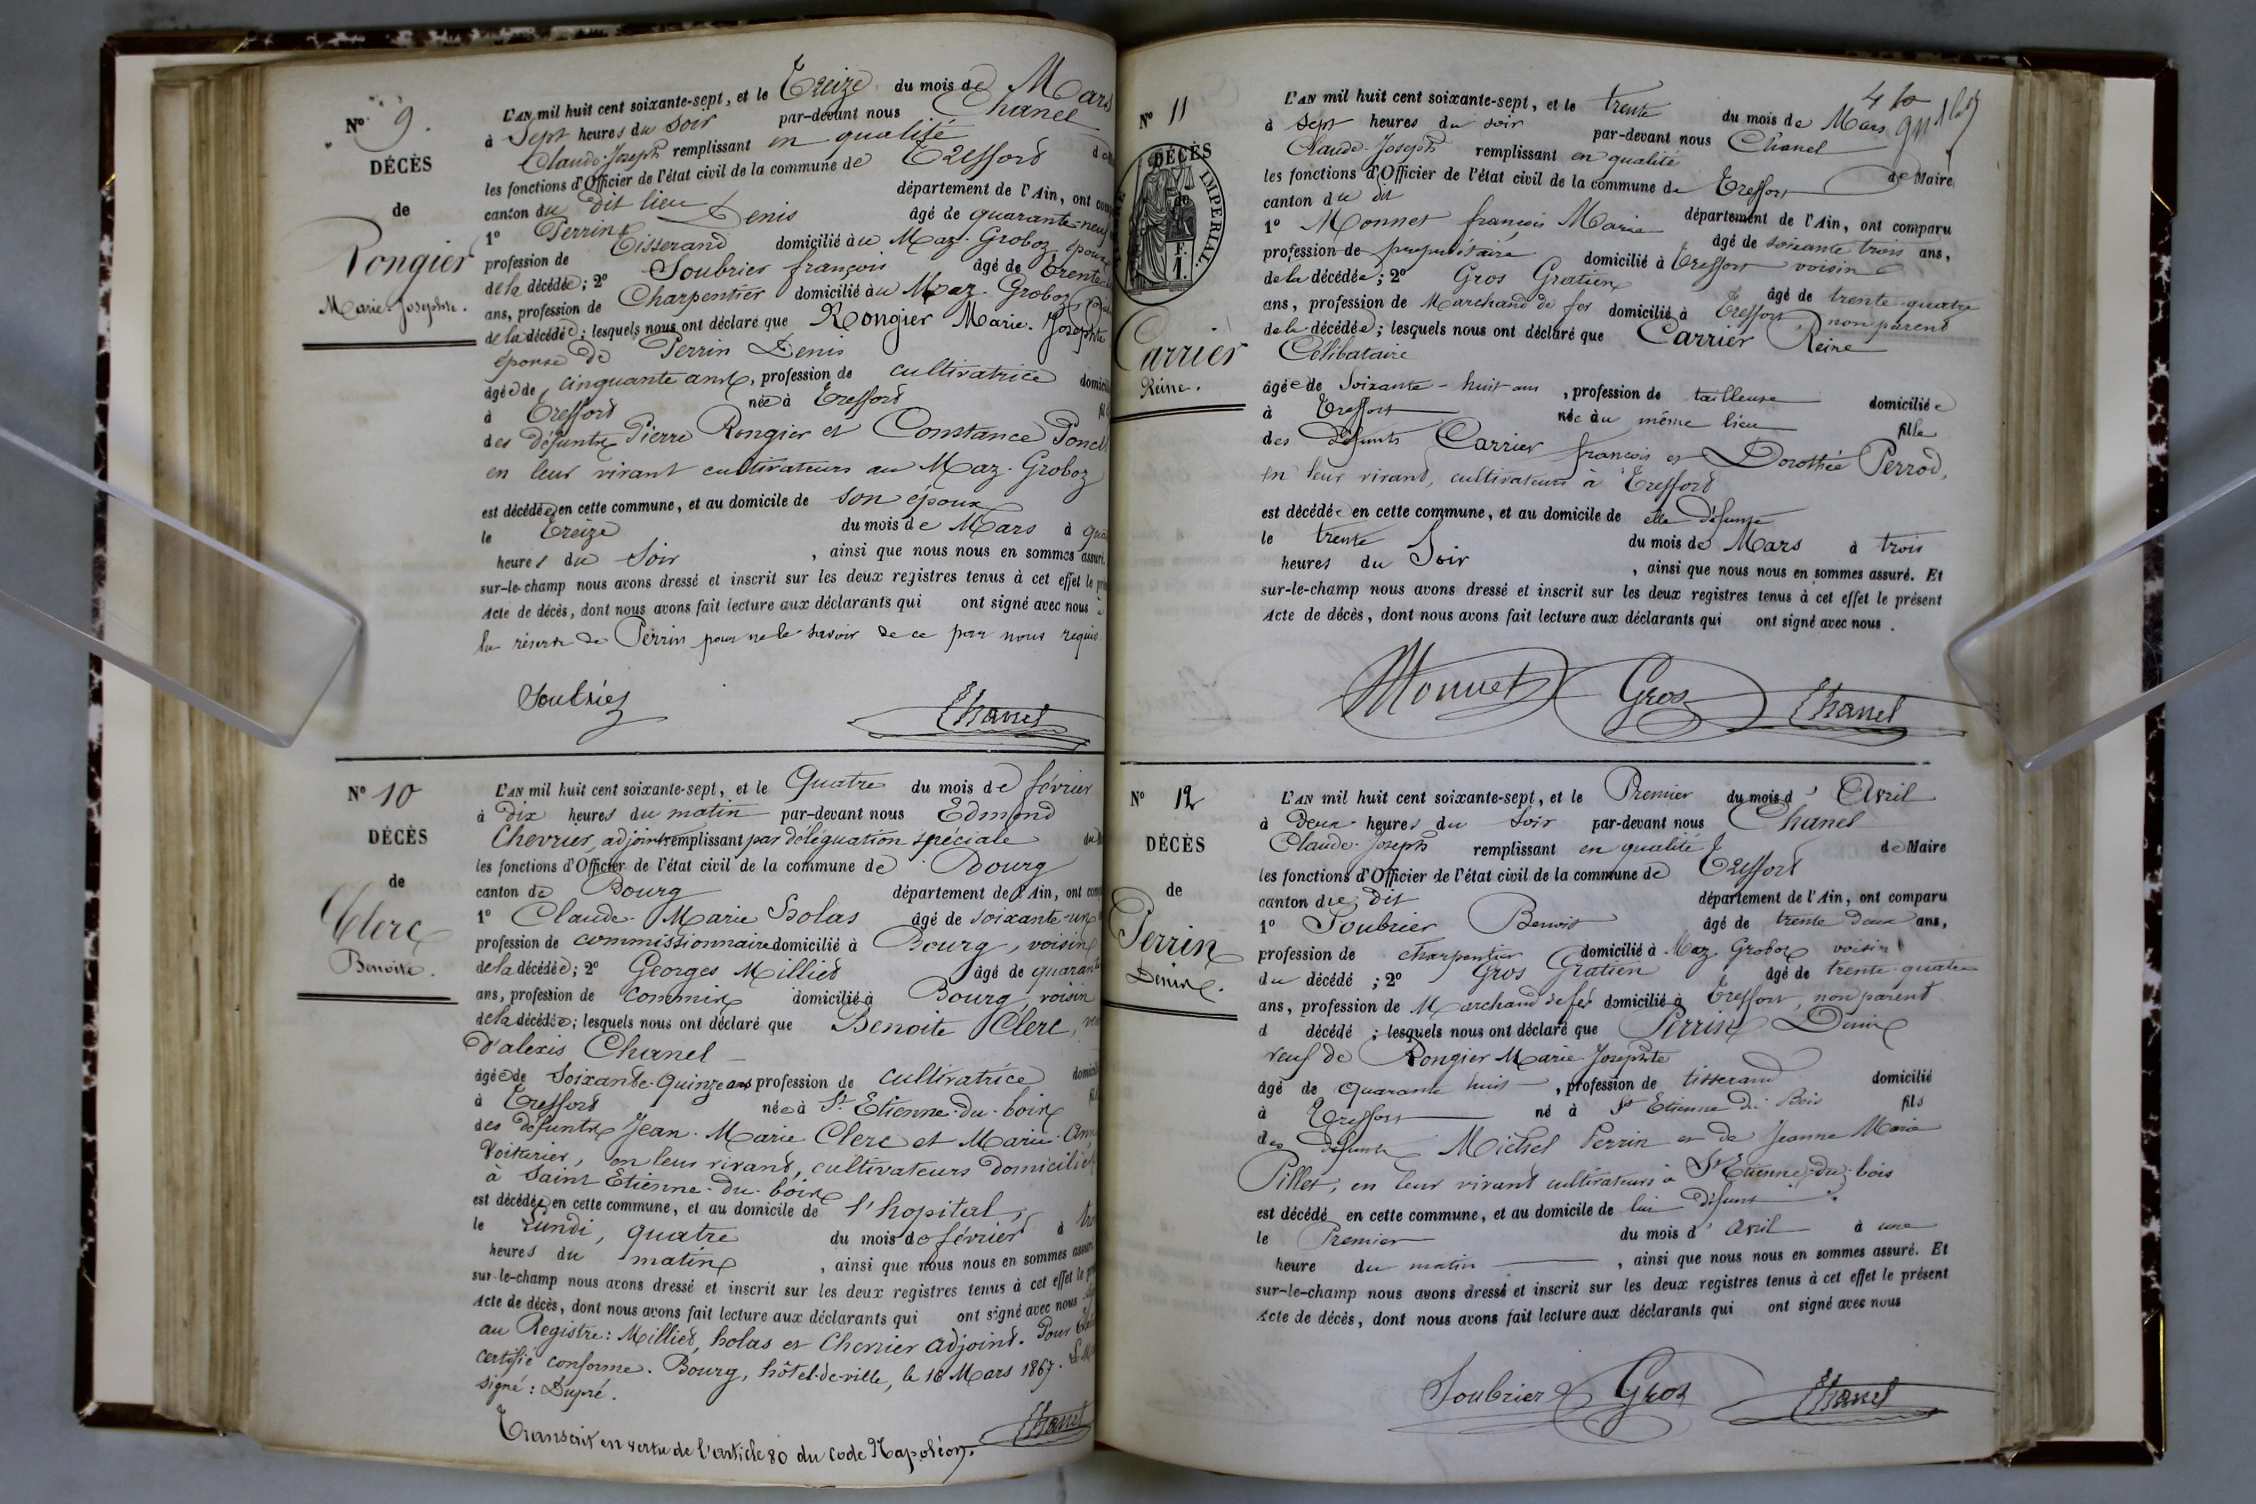 N° 9.
DÉCÈS
de
Rongier
Marie-Josephte.
L'AN mil huit cent soixante-sept, et le Treize du mois de Mars
à Sept heures du Soir par-devant nous Chanel
Claude-Joseph remplissant en qualité
les fonctions d'Officier de l'état civil de la commune de Treffort
canton du dit lieu département de l'Ain, ont
1° Perrin Denis âgé de quarante-neuf
profession de Tisserand domicilié au Maz-Groboz, époux
de la décédée; 2° Soubrier françois âgé de trente
ans, profession de Charpentier domicilié au Maz-Groboz,
de la décédée; lesquels nous ont déclaré que Rongier Marie-Josephte
épouse de Perrin Denis
âgée de cinquante ans, profession de cultivatrice
à Treffort née à Treffort
des défunts Pierre Rongier et Constance
en leur vivant cultivateurs au Maz-Groboz
est décédée en cette commune, et au domicile de son époux
le Treize du mois de Mars à
heures du Soir, ainsi que nous nous en sommes assuré.
sur-le-champ nous avons dressé et inscrit sur les deux registres tenus à cet effet le
Acte de décès, dont nous avons fait lecture aux déclarants qui ont signé avec nous à
la réserve de Perrin pour ne le savoir de ce par nous requis.
Soubrier Chanel
N° 10
DÉCÈS
de
Clerc
Benoite.
L'AN mil huit cent soixante-sept, et le Quatre du mois de février
à Dix heures du matin par-devant nous Edmond
Chevrier, adjoint remplissant par déléguation spéciale
les fonctions d'Officier de l'état civil de la commune de Bourg
canton de Bourg département de l'Ain, ont
1° Claude-Marie Bolas âgé de soixante-un
profession de commissionnaire domicilié à Bourg, voisin
de la décédée; 2° Georges Milliet âgé de
ans, profession de commis domicilié à Bourg, voisin
de la décédée; lesquels nous ont déclaré que Benoite Clerc,
d'alexis Chanel
âgée de Soixante-Quinze ans profession de cultivatrice
à Treffort née à St. Etienne-du-bois
des défunts Jean-Marie Clerc et Marie-
Voiturier, en leur vivant, cultivateurs domiciliés
à Saint Etienne-du-bois
est décédée en cette commune, et au domicile de l'hopital,
le Lundi, quatre du mois de février à
heures du matin, ainsi que nous nous en sommes
sur-le-champ nous avons dressé et inscrit sur les deux registres tenus à cet effet le
Acte de décès, dont nous avons fait lecture aux déclarants qui ont signé avec nous
au Registre: Milliet, bolas et Chevrier adjoint. Pour
certifié conforme. Bourg, hôtel-de-ville, le 16 Mars 1867.
signé: Dupré.
Chanel
Transcrit en vertu de l'article 80 du code Napoléon.
N° 11
DÉCÈS
de
IMPERIAL
1
F.
Carrier
Reine.
L'AN mil huit cent soixante-sept, et le trente du mois de Mars
à sept heures du soir par-devant nous Chanel
Claude-Joseph remplissant en qualité de Maire
les fonctions d'Officier de l'état civil de la commune de Treffort
canton du dit département de l'Ain, ont comparu
1° Monnet françois Marie âgé de soixante trois ans,
profession de propriétaire domicilié à Treffort voisin
de la décédée; 2° Gros Gratien âgé de trente-quatre
ans, profession de Marchand de fer domicilié à Treffort, non parent
de la décédée; lesquels nous ont déclaré que Carrier Reine
Célibataire
âgée de Soixante-huit ans, profession de tailleuse domiciliée
à Treffort née au même lieu fille
des défunts Carrier françois et Dorothée Perrod,
en leur vivant, cultivateurs à Treffort
est décédée en cette commune, et au domicile de elle défunte
le trente du mois de Mars à trois
heures du Soir, ainsi que nous nous en sommes assuré. Et
sur-le-champ nous avons dressé et inscrit sur les deux registres tenus à cet effet le présent
Acte de décès, dont nous avons fait lecture aux déclarants qui ont signé avec nous.
Monnet Gros Chanel
N° 12
DÉCÈS
de
Perrin
Denis.
L'AN mil huit cent soixante-sept, et le Premier du mois d'Avril
à Deux heures du Soir par-devant nous Chanel
Claude-Joseph remplissant en qualité de Maire
les fonctions d'Officier de l'état civil de la commune de Treffort
canton du dit département de l'Ain, ont comparu
1° Soubrier Benoit âgé de trente deux ans,
profession de charpentier domicilié à Maz Groboz voisin
du décédé; 2° Gros Gratien âgé de trente-quatre
ans, profession de Marchand de fer domicilié à Treffort, non parent
d décédé; lesquels nous ont déclaré que Perrin Denis
veuf de Rongier Marie-Josephte
âgé de quarante huit, profession de tisserand domicilié
à Treffort né à St Etienne du Bois fils
des défunts Michel Perrin et de Jeanne Marie
Pillet, en leur vivant cultivateurs à St Etienne-du-bois
est décédé en cette commune, et au domicile de lui défunt
le Premier du mois d'avril à une
heure du matin, ainsi que nous nous en sommes assuré. Et
sur-le-champ nous avons dressé et inscrit sur les deux registres tenus à cet effet le présent
Acte de décès, dont nous avons fait lecture aux déclarants qui ont signé avec nous
Soubrier Gros Chanel